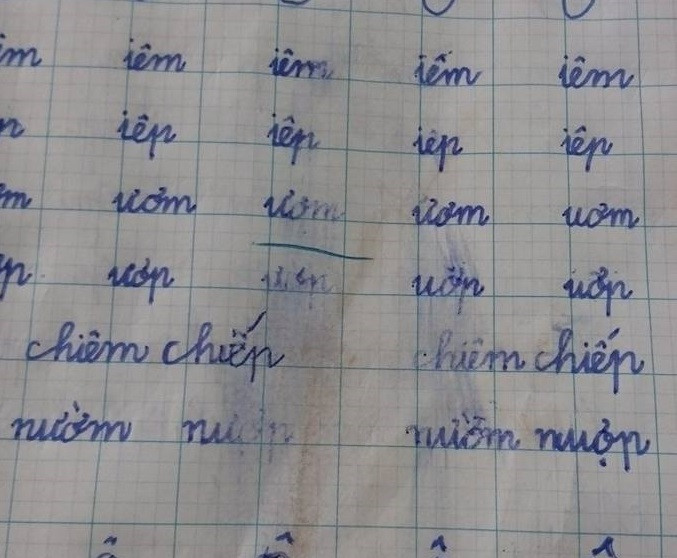 iêm iêm iêm iêm
iêp iêp iêp iêp
ươm ươm ươm ươm
ươp ươp ươp
chiêm chiếp chiêm chiếp
nườm nườm nượp